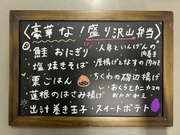 〈豪華な！盛り沢山弁当〉
鮭おにぎり
塩焼きそば
栗ごはん
蓮根のはさみ揚げ
出汁巻き玉子
人参といんげんの肉巻き
厚揚げとなすの肉みそ
ちくわの磯辺揚げ
おくらとカニカマの
おかか和え
スイートポテト